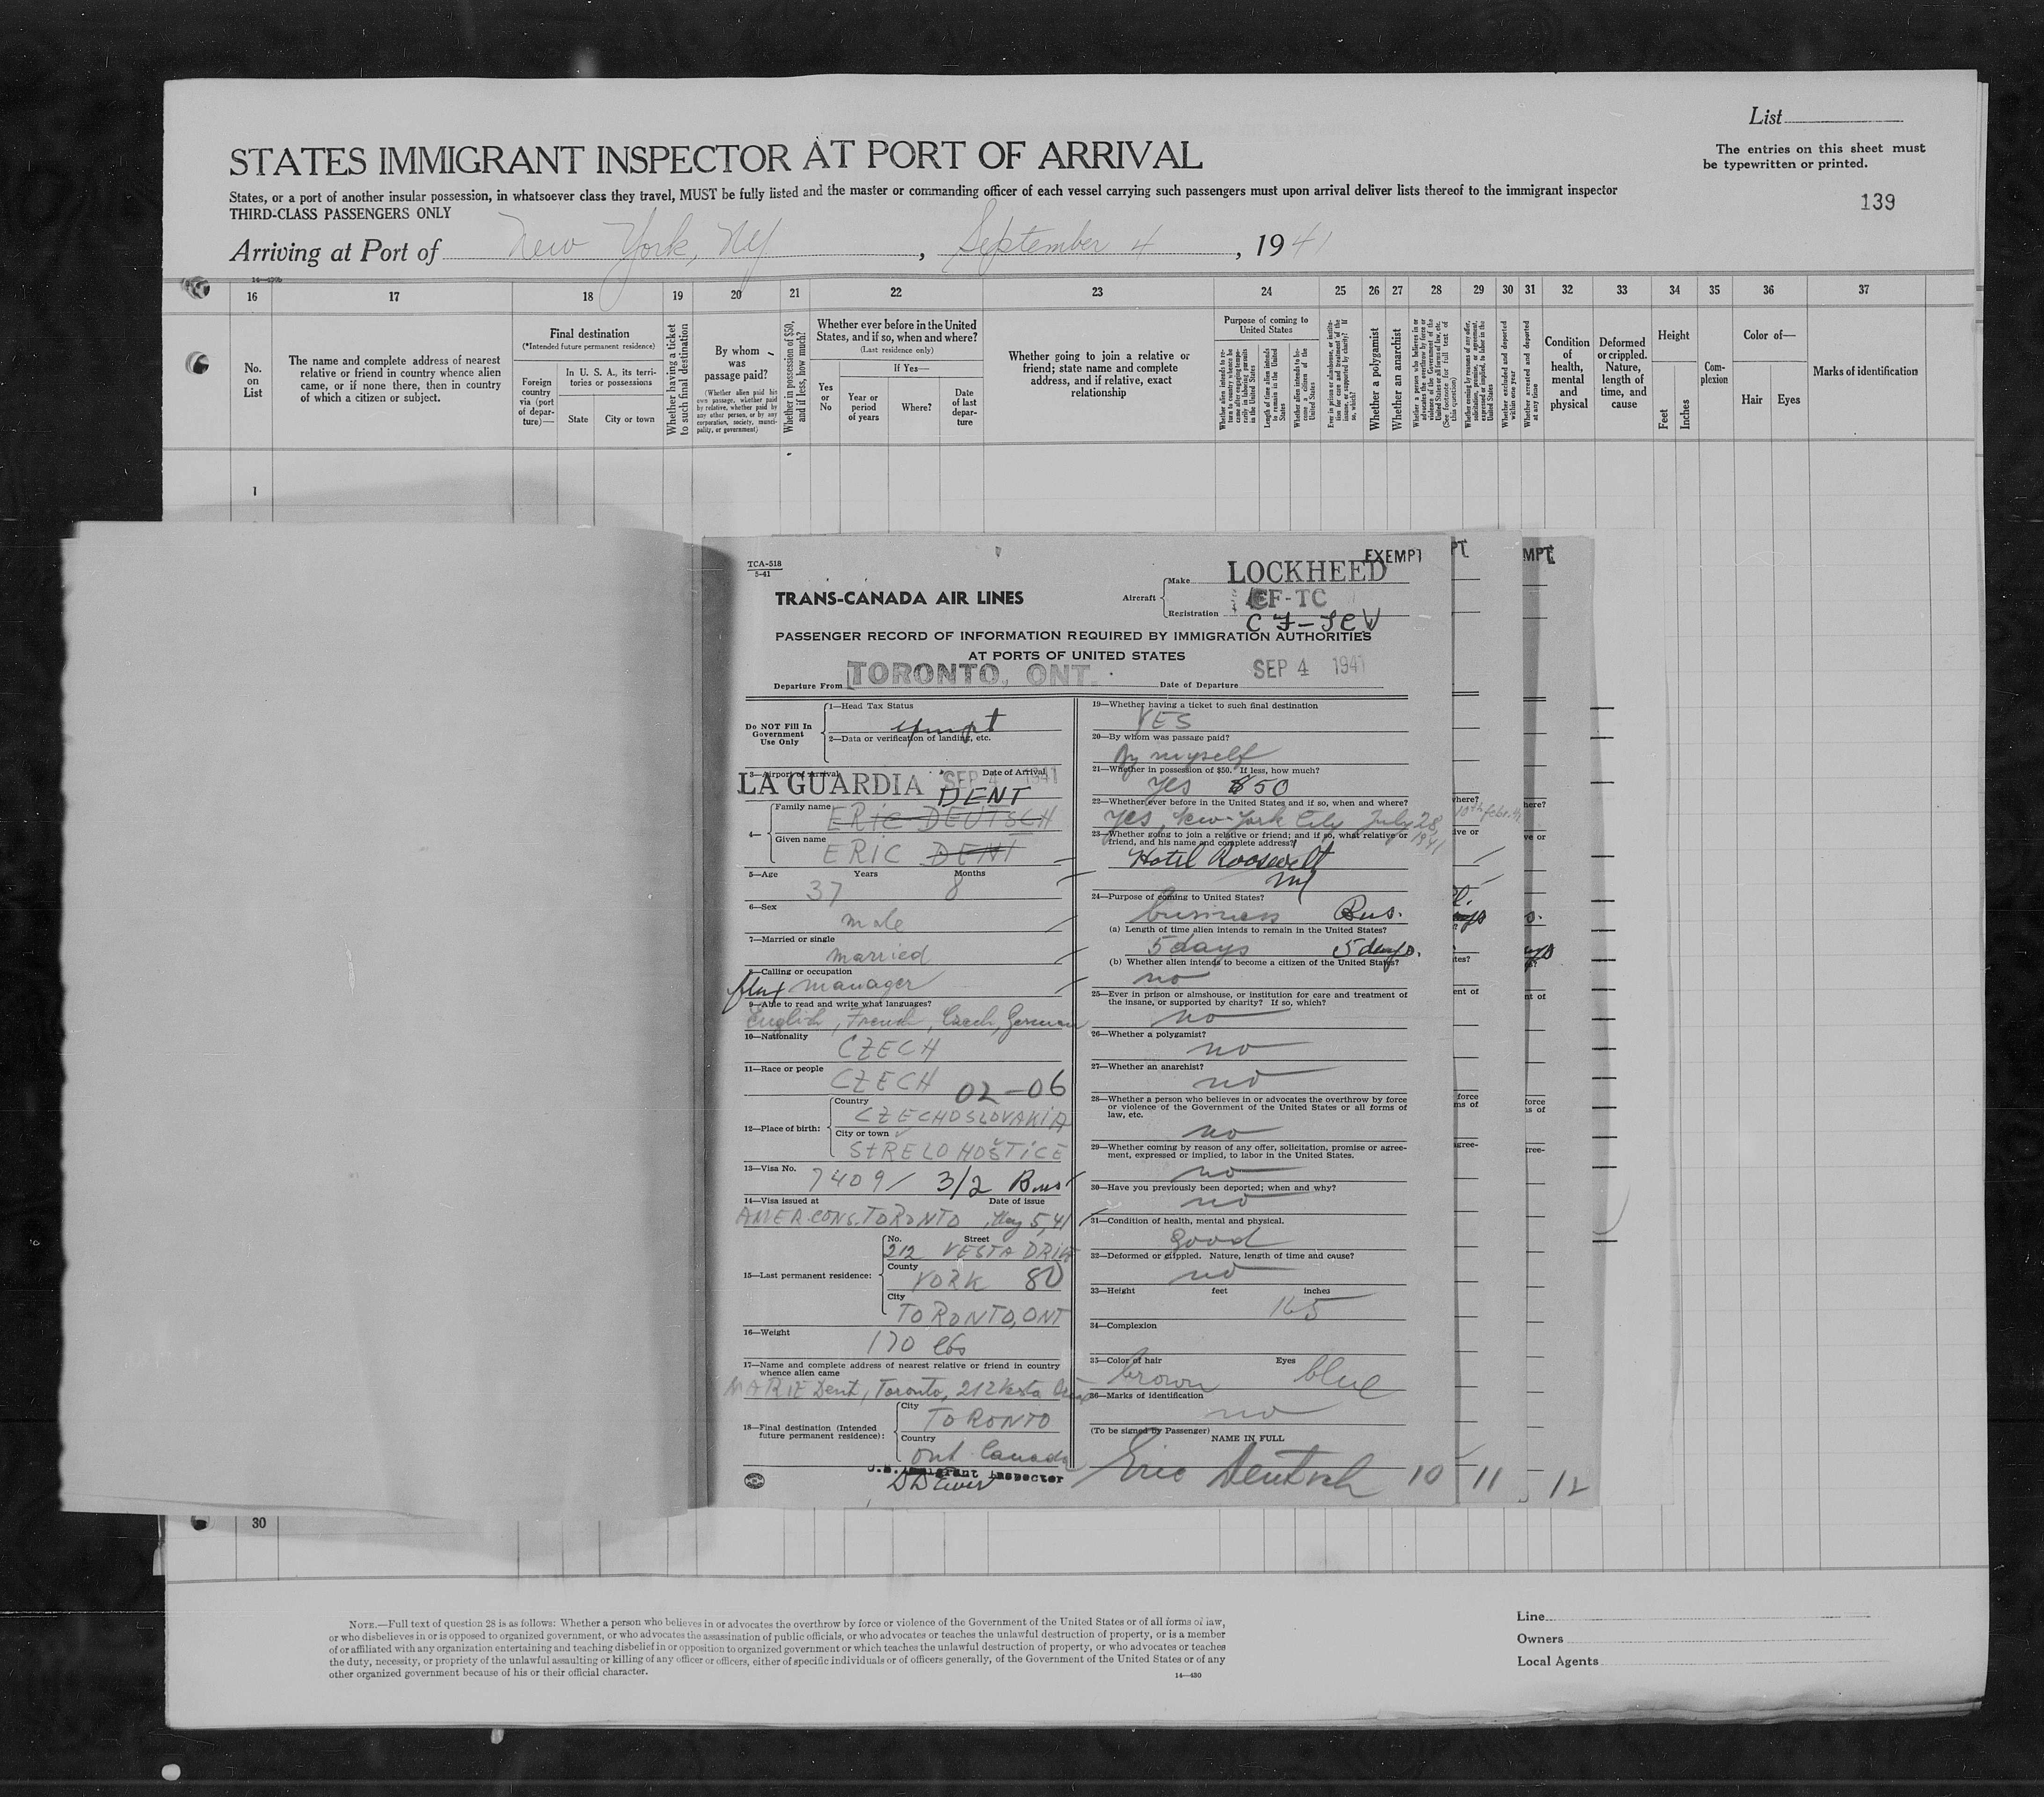 List
STATES IMMIGRANT INSPECTOR AT PORT OF ARRIVAL
The entries on this sheet must
be typewritten or printed.
States, or a port of another insular possession, in whatsoever class they travel, MUST be fully listed and the master or commanding officer of each vessel carrying such passengers must upon arrival deliver lists thereof to the immigrant inspector
THIRD-CLASS PASSENGERS ONLY
139
Arriving at Port of New York, NY, September 4, 1941
16 17 18 19 20 21 22 23 24 25 26 27 28 29 30 31 32 33 34 35 36 37
No.
on
List
The name and complete address of nearest
relative or friend in country whence alien
came, or if none there, then in country
of which a citizen or subject.
Final destination
(*Intended future permanent residence)
Foreign
country
via (port
of depar-
ture)—
In U. S. A., its terri-
tories or possessions
State
City or town
Whether having a ticket
to such final destination
By whom
was
passage paid?
(Whether alien paid his
own passage, whether paid
by relative, whether paid by
any other person, or by any
corporation, society, munici-
pality, or government)
Whether in possession of $50,
and if less, how much?
Whether ever before in the United
States, and if so, when and where?
(Last residence only)
Yes
or
No
If Yes—
Year or
period
of years
Where?
Date
of last
depar-
ture
Whether going to join a relative or
friend; state name and complete
address, and if relative, exact
relationship
Purpose of coming to
United States
Length of time alien intends
to remain in the United
States
Whether alien intends to be-
come a citizen of the
United States
Whether a polygamist
Whether an anarchist
Whether arrested and deported
at any time
Condition
of
health,
mental
and
physical
Deformed
or crippled.
Nature,
length of
time, and
cause
Height
Feet
Inches
Com-
plexion
Color of—
Hair
Eyes
Marks of identification
1
TCA-518
5-41
EXEMPT
TRANS-CANADA AIR LINES
Aircraft
Make LOCKHEED
Registration CF-TC
CF-TCV
PASSENGER RECORD OF INFORMATION REQUIRED BY IMMIGRATION AUTHORITIES
AT PORTS OF UNITED STATES
Departure From TORONTO, ONT.
Date of Departure SEP 4 1941
Do NOT Fill In
Government
Use Only
1—Head Tax Status
exmpt
2—Data or verification of landing, etc.
3—Airport of Arrival
Date of Arrival
LA GUARDIA SEP 4 1941
DENT
4— Family name ERIC DEUTSCH
Given name ERIC DENT
5—Age Years Months
37 8
6—Sex
male
7—Married or single
married
8—Calling or occupation
manager
9—Able to read and write what languages?
English, French, Czech, German
10—Nationality
CZECH
11—Race or people
CZECH 02-06
12—Place of birth:
Country
CZECHOSLOVAKIA
City or town
STRELOHOŠTICE
13—Visa No. 7409/ 3/2 Bus
14—Visa issued at Date of issue
AMER. CONS. TORONTO, May 5, 41
15—Last permanent residence:
No. Street
212 VESTA DRIVE
County
YORK 80
City
TORONTO, ONT
16—Weight
170 lbs
17—Name and complete address of nearest relative or friend in country
whence alien came
MARIE Dent, Toronto, 212 Vesta Drive
18—Final destination (Intended
future permanent residence):
City
TORONTO
Country
Ont Canada
U.S. Immigrant Inspector
19—Whether having a ticket to such final destination
YES
20—By whom was passage paid?
By myself
21—Whether in possession of $50. If less, how much?
yes $50
22—Whether ever before in the United States and if so, when and where?
yes, New-York City July 28,
1941
23—Whether going to join a relative or friend; and if so, what relative or
friend, and his name and complete address?
Hotel Roosevelt
NY
24—Purpose of coming to United States?
business Bus.
(a) Length of time alien intends to remain in the United States?
5 days 5 days.
(b) Whether alien intends to become a citizen of the United States?
no
25—Ever in prison or almshouse, or institution for care and treatment of
the insane, or supported by charity? If so, which?
no
26—Whether a polygamist?
no
27—Whether an anarchist?
no
28—Whether a person who believes in or advocates the overthrow by force
or violence of the Government of the United States or all forms of
law, etc.
no
29—Whether coming by reason of any offer, solicitation, promise or agree-
ment, expressed or implied, to labor in the United States.
no
30—Have you previously been deported; when and why?
no
31—Condition of health, mental and physical.
good
32—Deformed or crippled. Nature, length of time and cause?
no
33—Height feet inches
165
34—Complexion
35—Color of hair Eyes
brown blue
36—Marks of identification
no
(To be signed by Passenger)
NAME IN FULL
Eric Deutsch 10 11 12
30
NOTE.—Full text of question 28 is as follows: Whether a person who believes in or advocates the overthrow by force or violence of the Government of the United States or of all forms of law,
or who disbelieves in or is opposed to organized government, or who advocates the assassination of public officials, or who advocates or teaches the unlawful destruction of property, or is a member
of or affiliated with any organization entertaining and teaching disbelief in or opposition to organized government or which teaches the unlawful destruction of property, or who advocates or teaches
the duty, necessity, or propriety of the unlawful assaulting or killing of any officer or officers, either of specific individuals or of officers generally, of the Government of the United States or of any
other organized government because of his or their official character.
14—430
Line
Owners
Local Agents